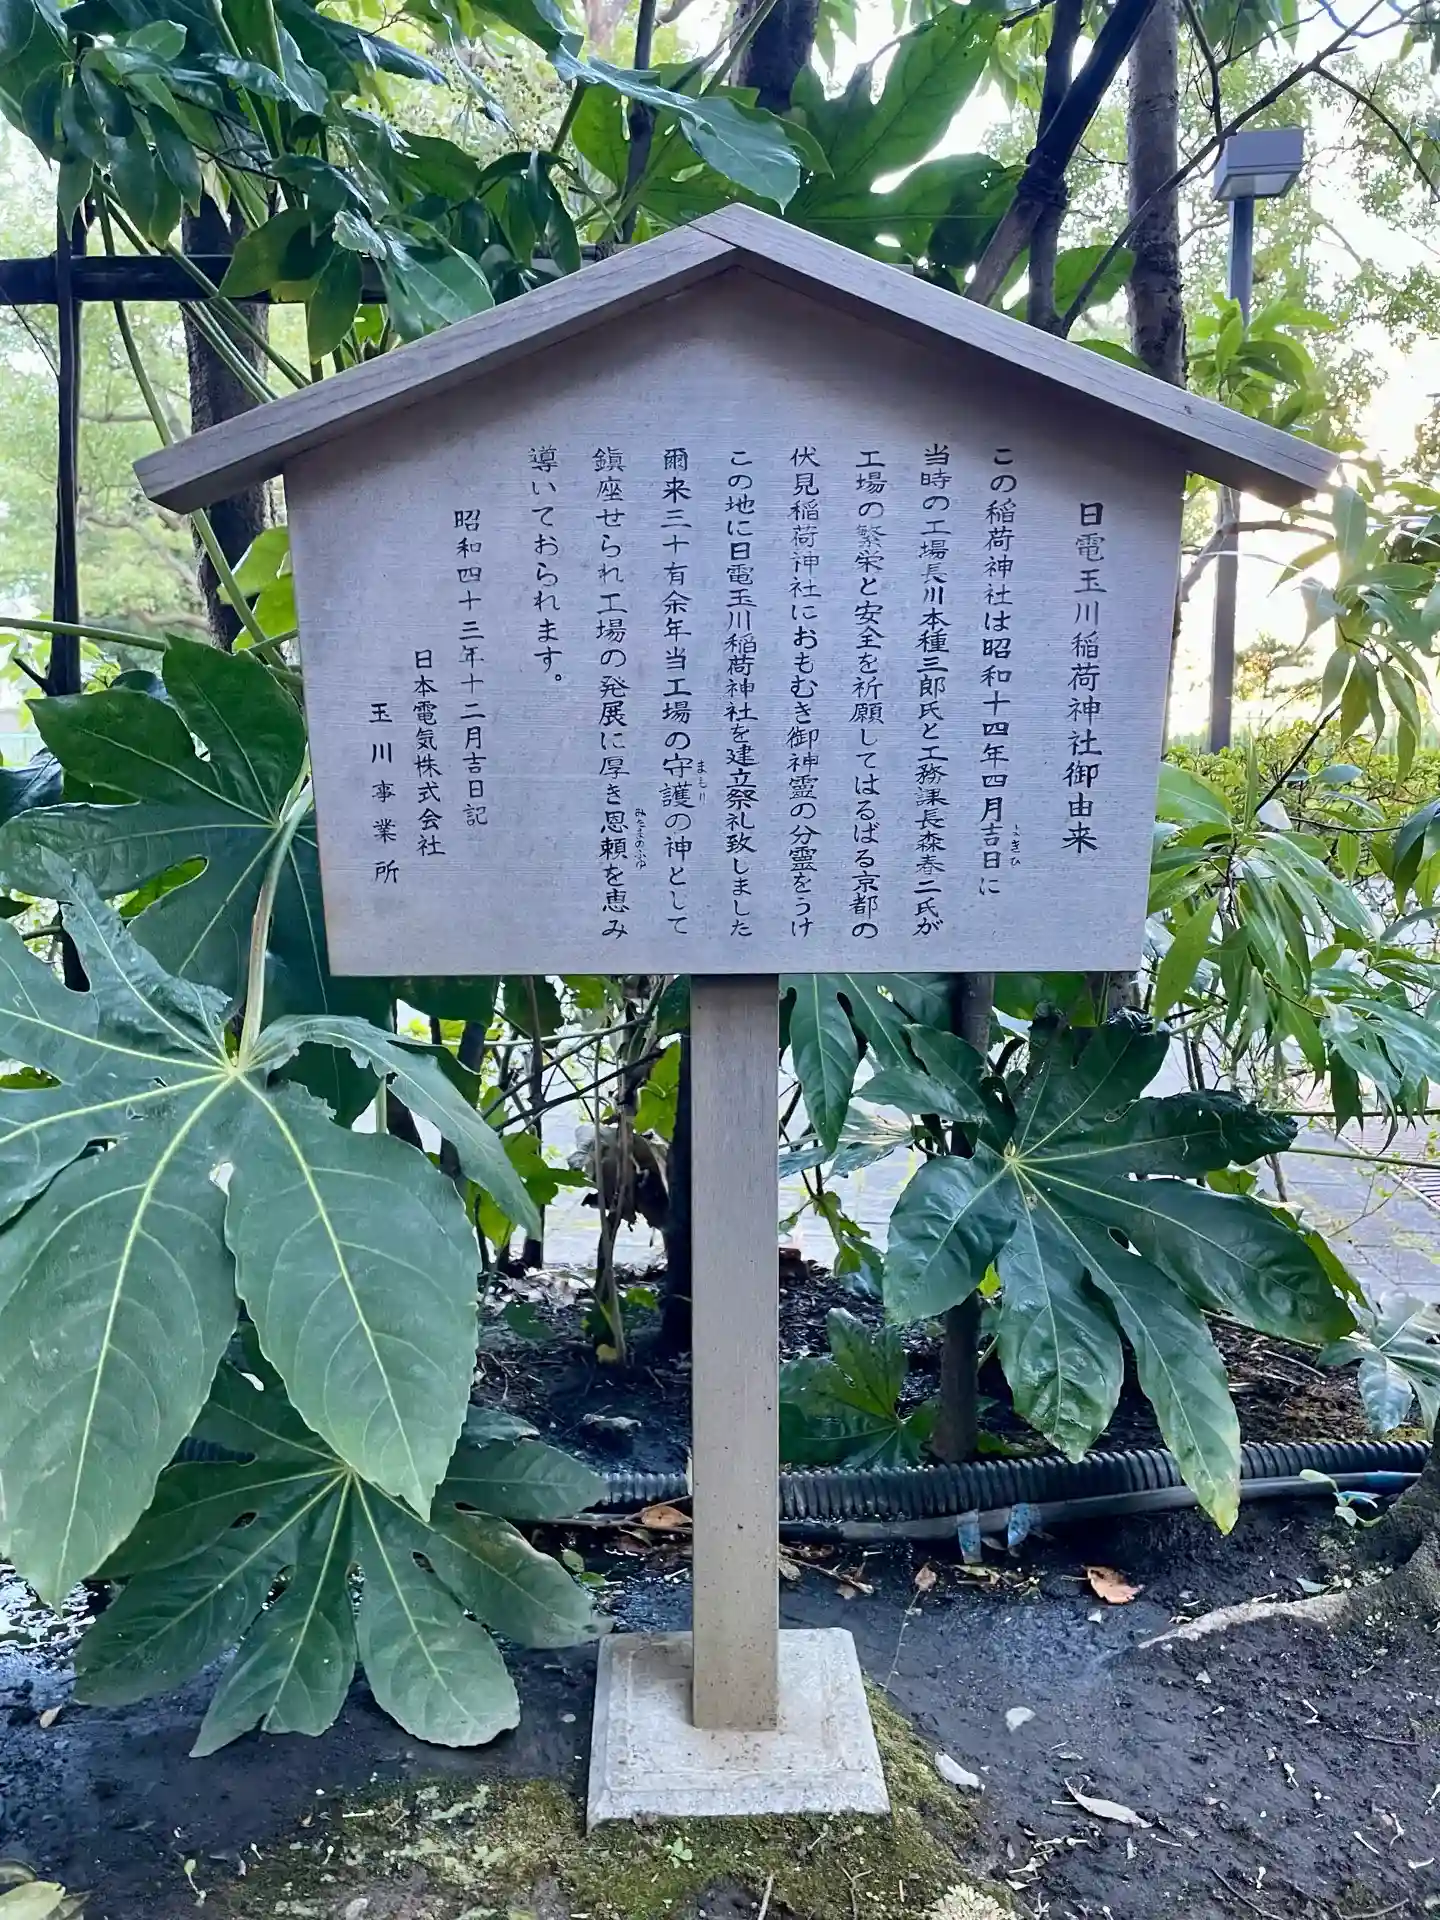 日電玉川稲荷神社御由来
この稲荷神社は昭和十四年四月吉日に
当時の工場長川本種三郎氏と工務課長森春二氏が
工場の繁栄と安全を祈願してはるばる京都の
伏見稲荷神社におもむき御神霊の分霊をうけ
この地に日電玉川稲荷神社を建立祭礼致しました
爾来三十有余年当工場の守護の神として
まもり
鎮座せられ工場の発展に厚き恩頼を恵み
みたまのふゆ
導いておられます。
昭和四十三年十二月吉日記
日本電気株式会社
玉川事業所